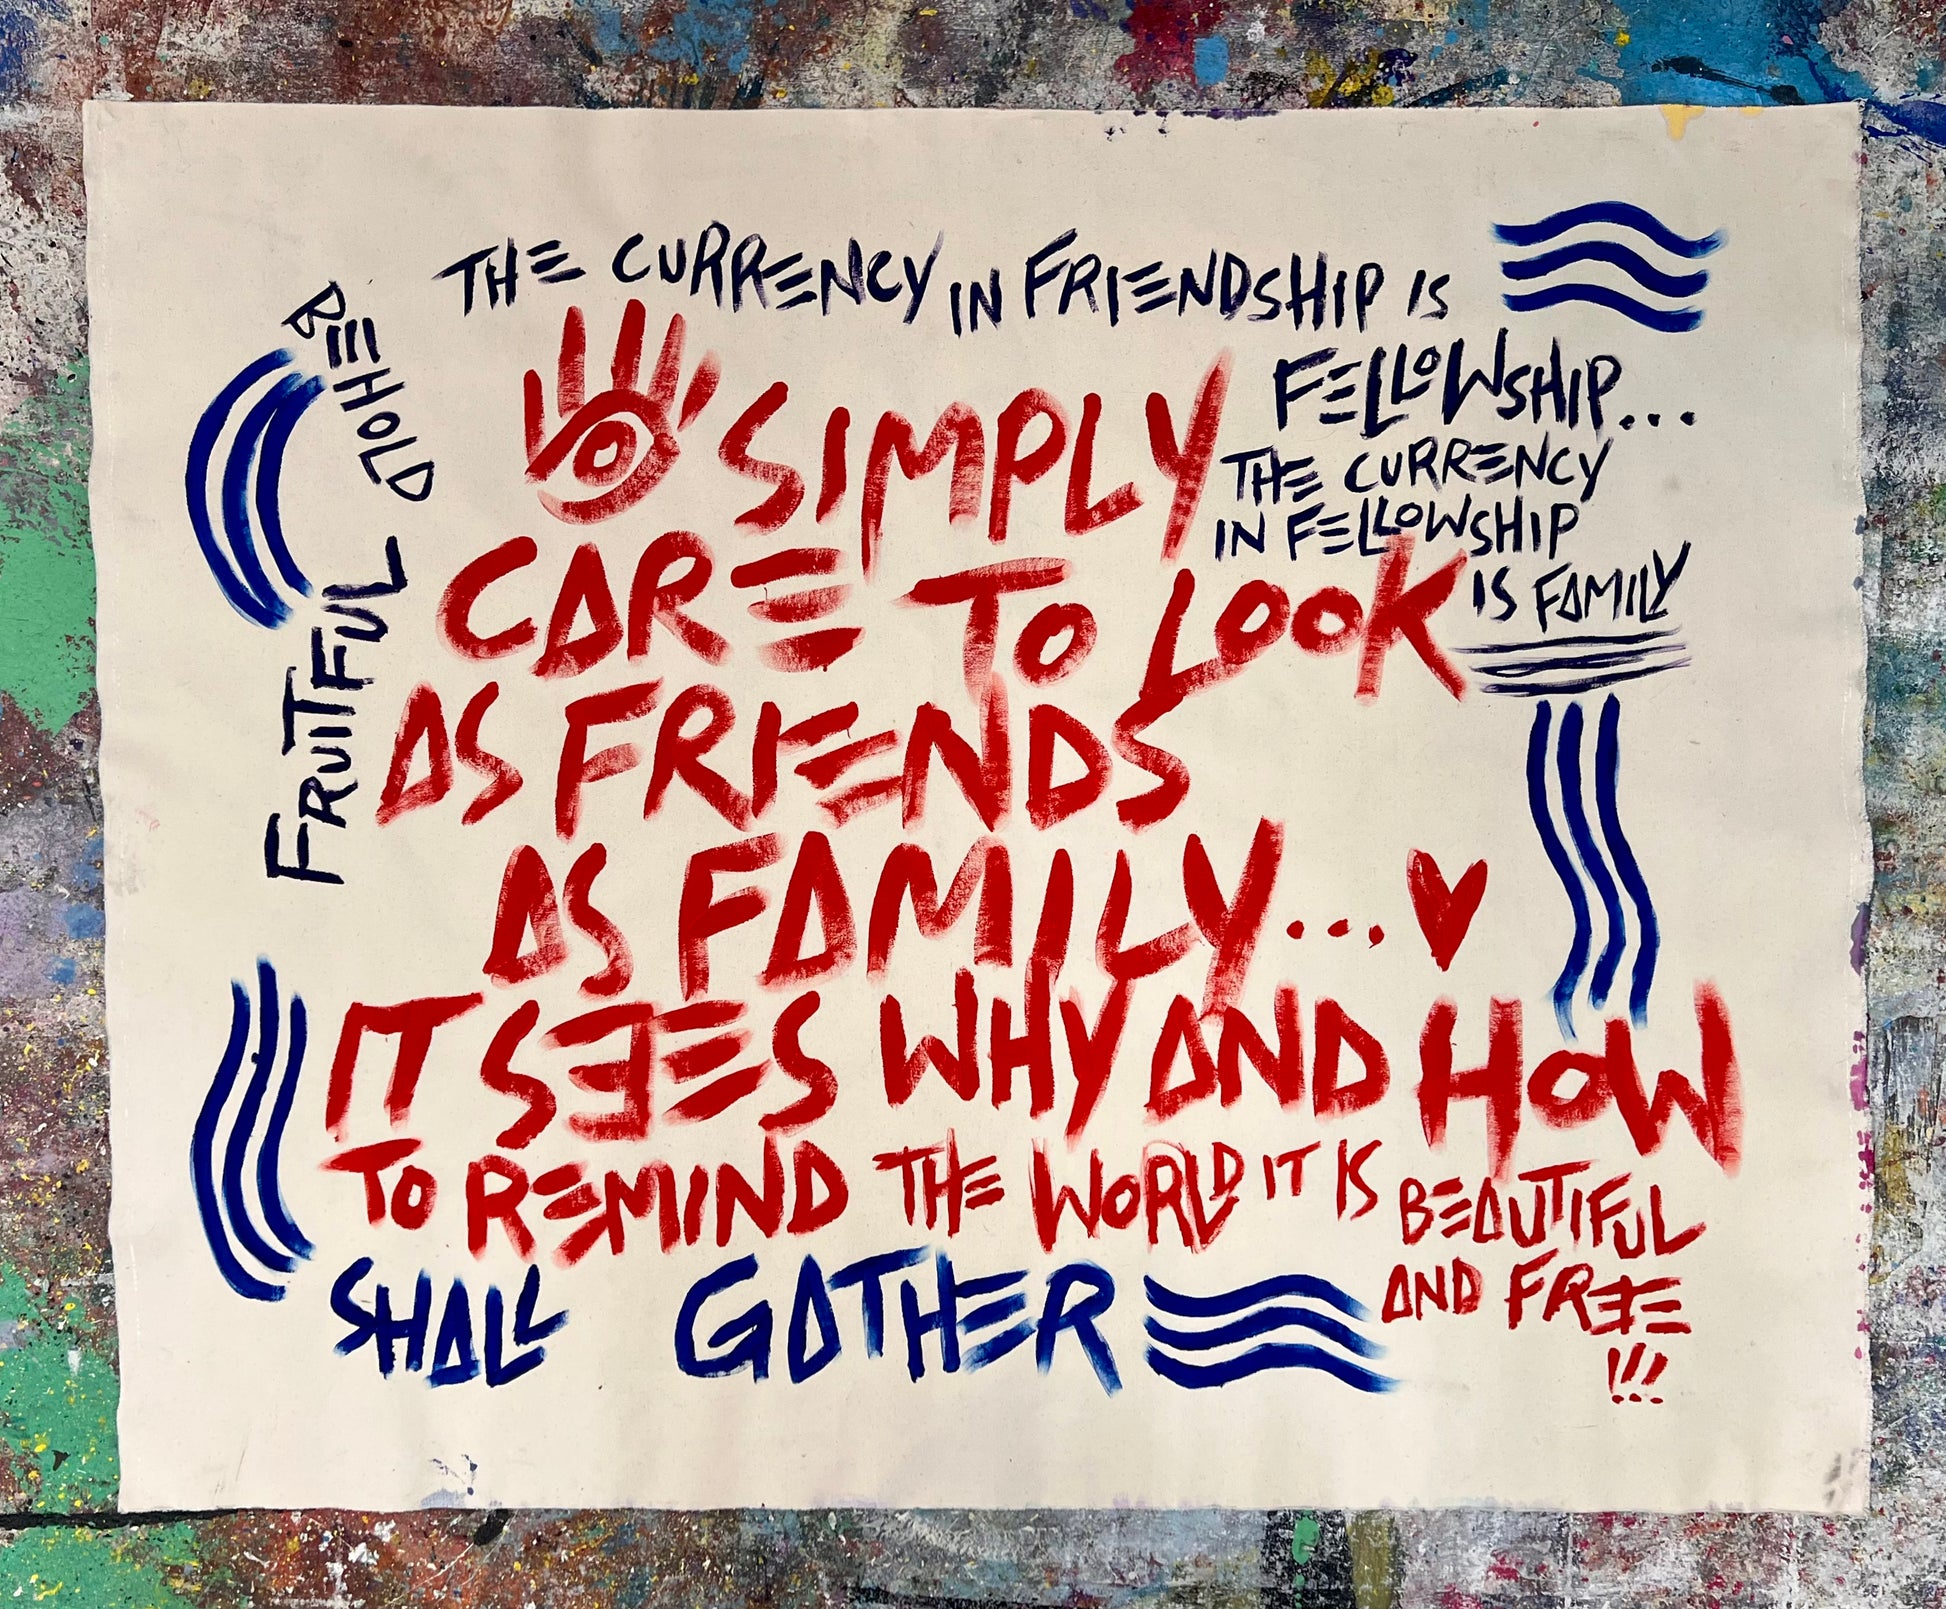 THE CURRENCY IN FRIENDSHIP IS
FELLOWSHIP...
THE CURRENCY
IN FELLOWSHIP
IS FAMILY
SIMPLY
CARE TO LOOK
AS FRIENDS
AS FAMILY...
IT SEES WHY AND HOW
TO REMIND THE WORLD IT IS BEAUTIFUL
AND FREE
!!!
SHALL GATHER
FRUITFUL
BEHOLD